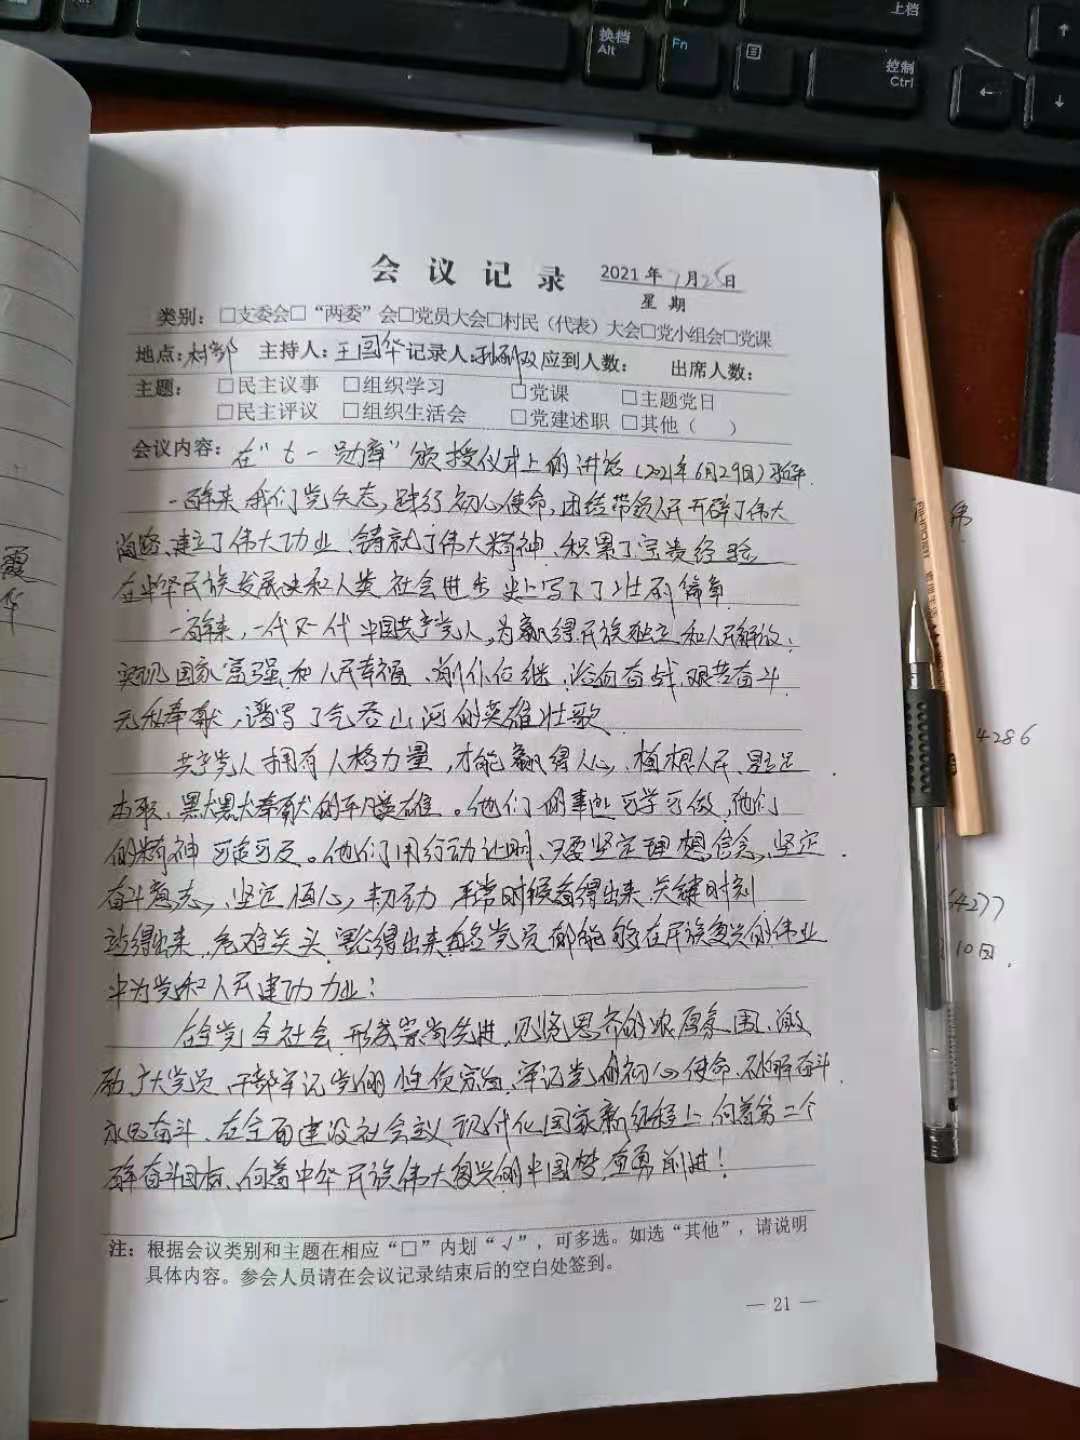 上档
换档
Alt
Fn
控制
Ctrl
←
→
↓
会议记录
2021年7月25日
星期
类别：□支委会□“两委”会□党员大会□村民（代表）大会□党小组会□党课
地点：村部 主持人：王国华 记录人： 应到人数： 出席人数：
主题： □民主议事 □组织学习 □党课 □主题党日
□民主评议 □组织生活会 □党建述职 □其他（ ）
会议内容：在“七一勋章”颁授仪式上的讲话（2021年6月29日）
一百年来，我们党矢志践行初心使命，团结带领人民开辟了伟大
道路、建立了伟大功业、铸就了伟大精神、积累了宝贵经验
在中华民族发展史和人类社会进步史上写下了壮丽篇章
一百年来，一代又一代中国共产党人，为赢得民族独立和人民解放、
实现国家富强和人民幸福，前仆后继，浴血奋战，艰苦奋斗
无私奉献，谱写了气吞山河的英雄壮歌
共产党人拥有人格力量，才能赢得人心，植根人民、立足
本职、默默奉献的平凡英雄。他们的事迹可学可做，他们
的精神可追可及。他们用行动证明，只要坚定理想信念、坚定
奋斗意志，坚定恒心，韧劲，平常时候看得出来、关键时刻
站得出来、危难关头豁得出来，每名党员都能够在民族复兴的伟业
中为党和人民建功力业；
在全党全社会形成崇尚先进，见贤思齐的浓厚氛围，激
励广大党员、干部牢记党的性质宗旨，牢记党的初心使命，不懈奋斗
永远奋斗、在全面建设社会主义现代化国家新征程上，向着第二个
百年奋斗目标，向着中华民族伟大复兴的中国梦，奋勇前进！
注：根据会议类别和主题在相应“□”内划“√”，可多选。如选“其他”，请说明
具体内容。参会人员请在会议记录结束后的空白处签到。
— 21 —
霞
华
伟
4286
4277
10日.